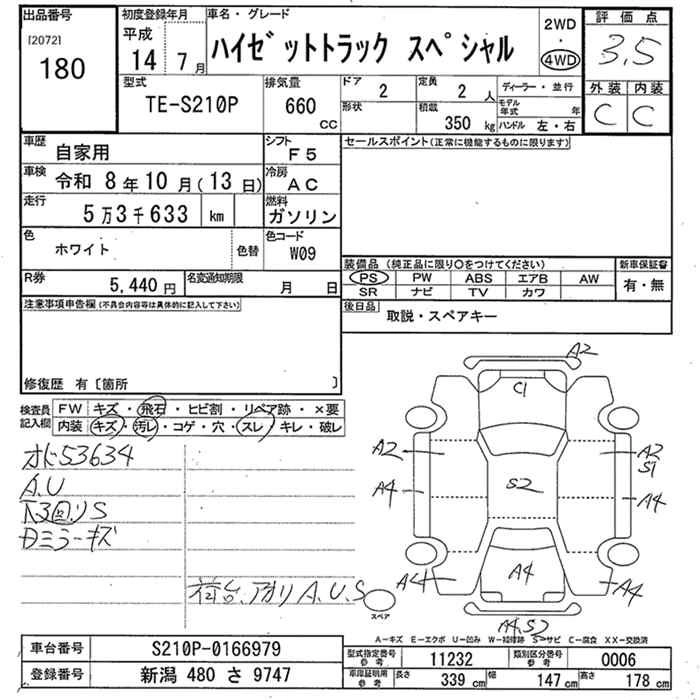 出品番号
[2072]
180
初度登録年月
平成
14 7 月
車名・グレード
ハイゼットトラック スペシャル
2WD
・
4WD
評価点
3.5
外装 内装
C C
型式
TE-S210P
排気量
660
cc
ドア
2
形状
定員
2 人
積載
350 kg
ディーラー・並行
モデル年式 年
ハンドル 左・右
車歴
自家用
シフト
F5
車検
令和 8年 10 月( 13 日)
冷房
AC
走行
5万3千633 km
燃料
ガソリン
色
ホワイト
色替
色コード
W09
R券
5,440 円
名変通知期限
月 日
セールスポイント(正常に機能するものに限ります)
装備品(純正品に限り○をつけてください)
PS PW ABS エアB AW
SR ナビ TV カワ
新車保証書
有・無
後日品
取説・スペアキー
注意事項申告欄(不具合内容等は具体的に記入して下さい)
修復歴 有〔箇所 〕
検査員記入欄
FW キズ・飛石・ヒビ割・リペア跡・×要
内装 キズ・汚レ・コゲ・穴・スレ・キレ・破レ
オド53634
A.U
下回リS
Dミラーキズ
荷台.アオリ A.U.S
A2
C1
A2
A2
S1
A4
S2
A4
A4
A4
A4
A4.S2
スペア
A-キズ E-エクボ U-凹み W-補修跡 S-サビ C-腐食 XX-交換済
車台番号
S210P-0166979
登録番号
新潟 480 さ 9747
型式指定番号
参考
11232
類別区分番号
参考
0006
車庫証明用
参考
長さ 339 cm
幅 147 cm
高さ 178 cm